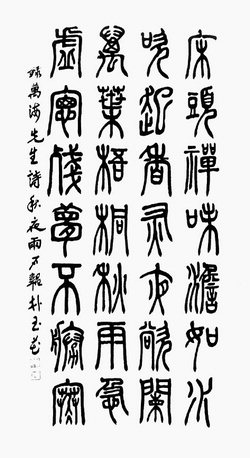 床頭禪味澹如水
吹起香灰夜欲闌
萬葉梧桐秋雨急
虛窓殘夢不勝寒
錄萬海先生詩秋夜雨 朴玉